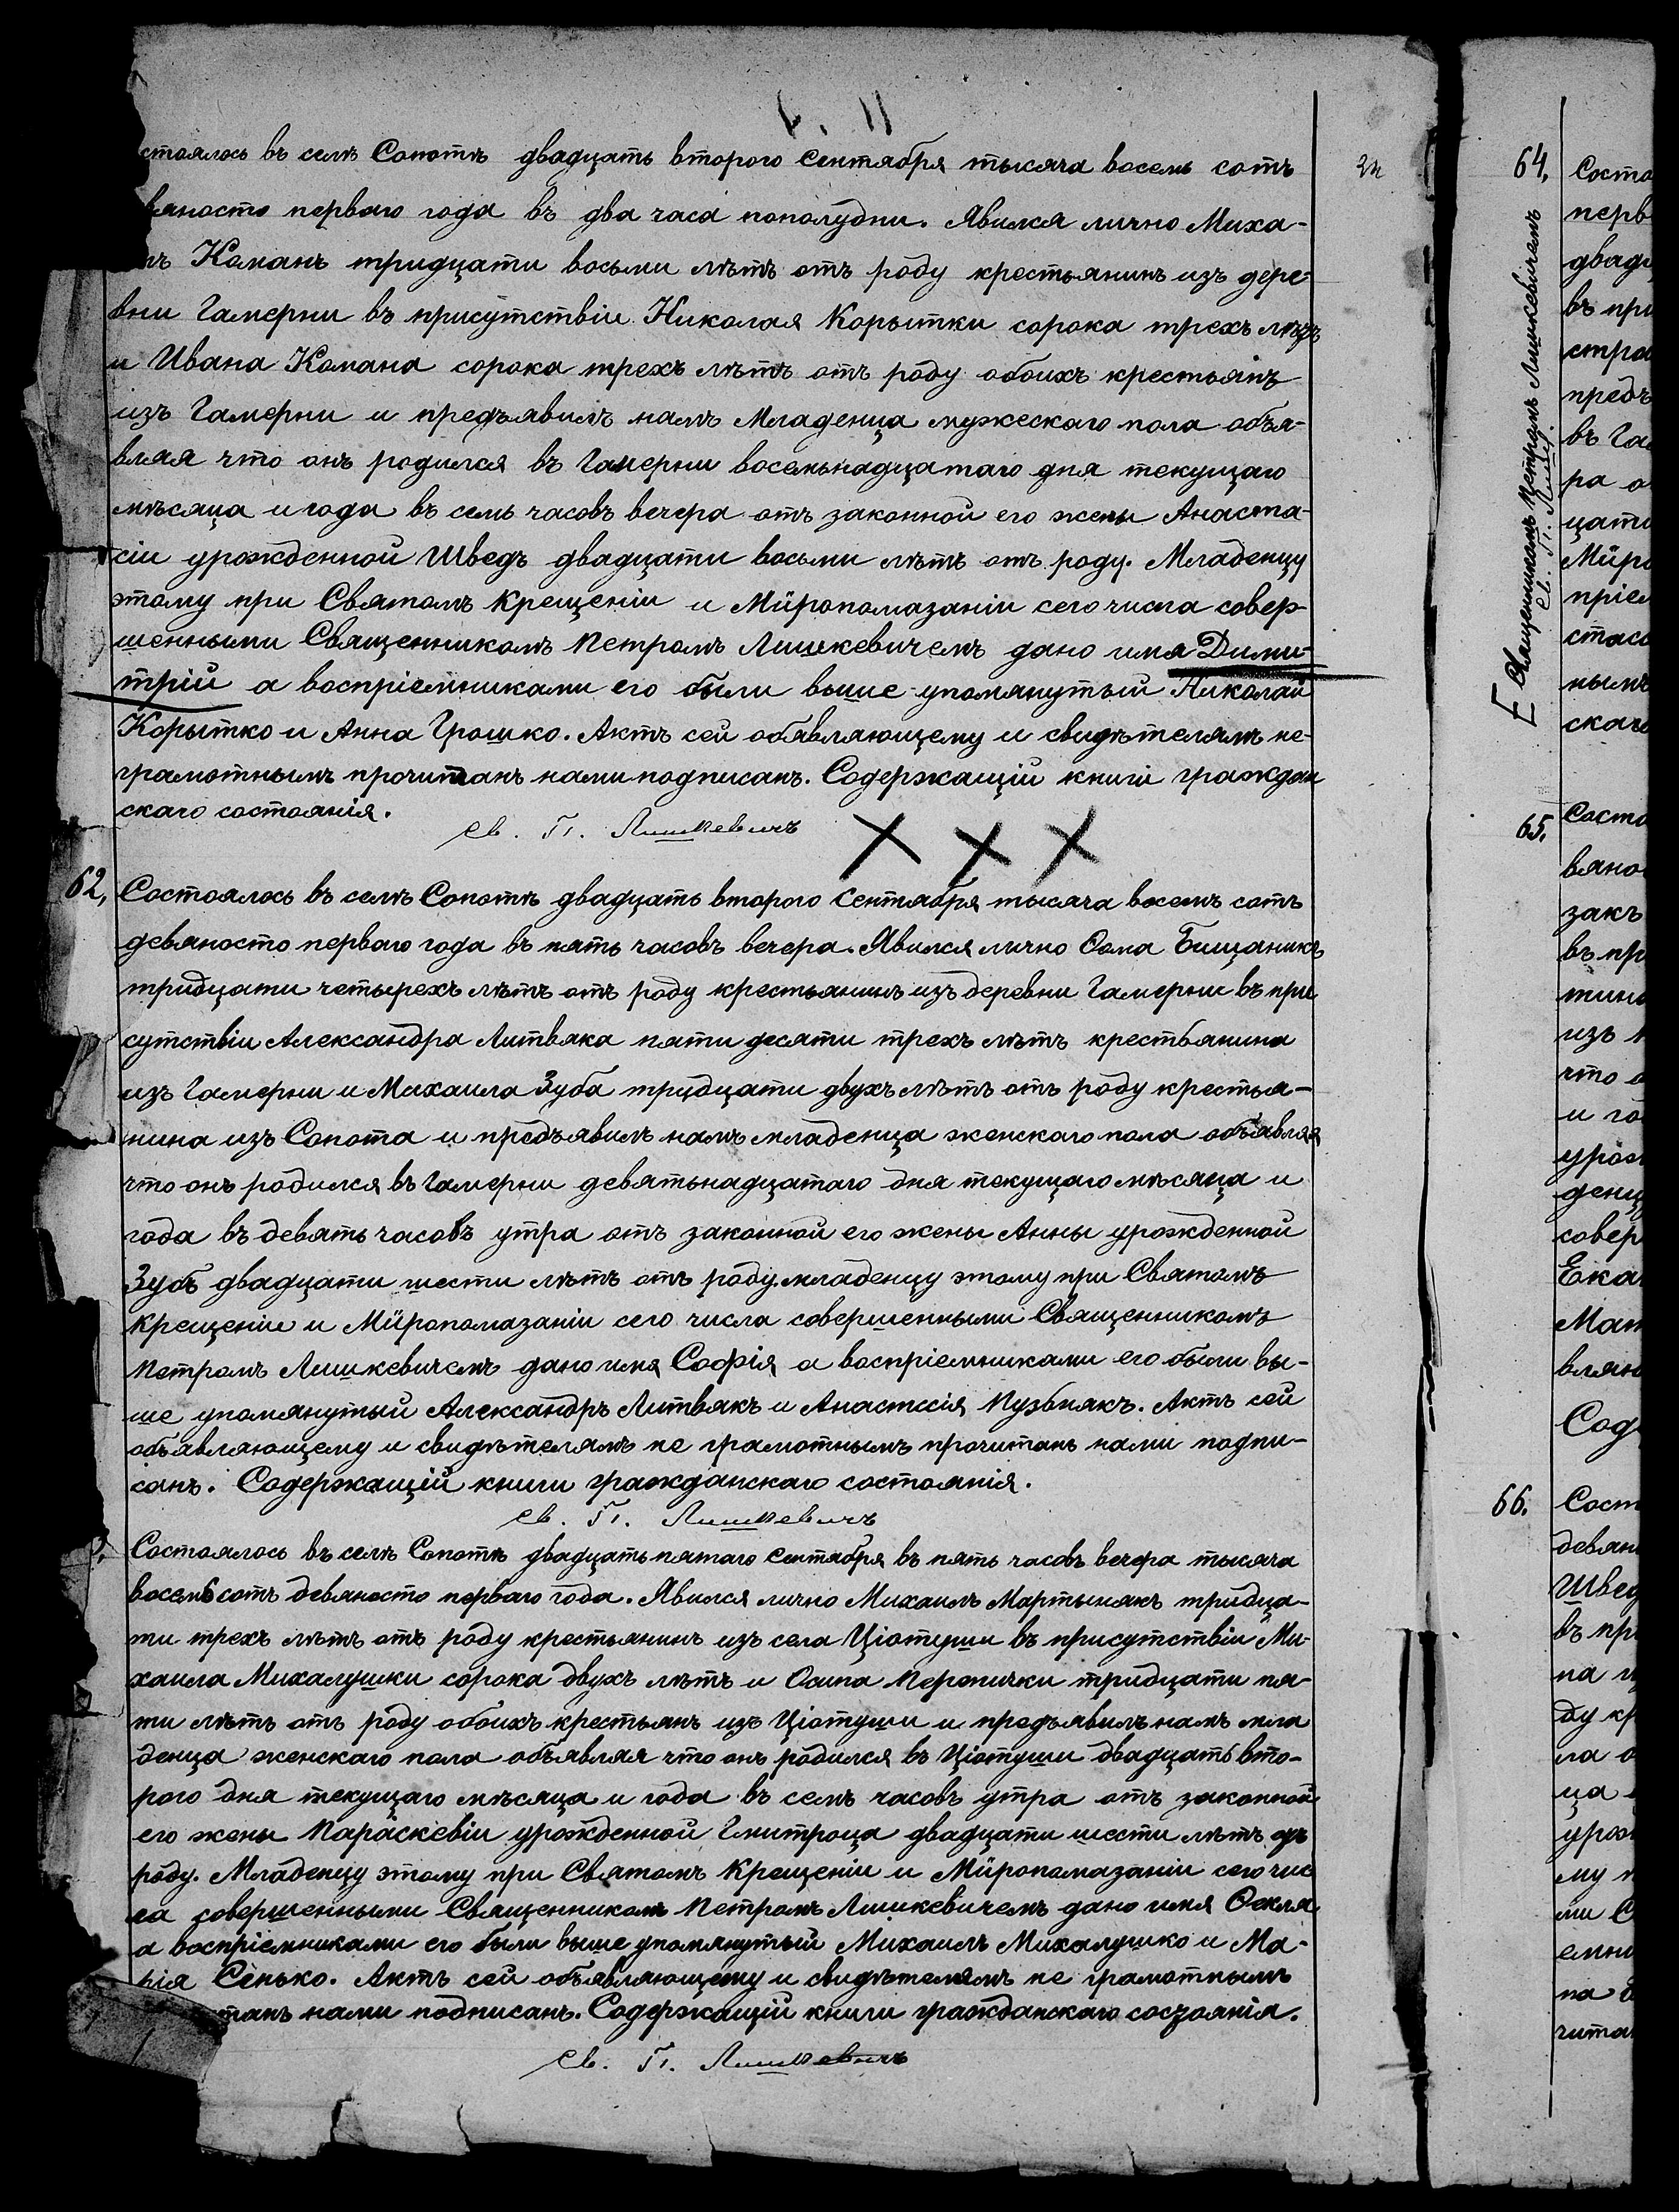 стоялось въ селѣ Сопотѣ двадцать второго Сентября тысяча восемь сотъ
вяносто перваго года въ два часа пополудни. Явился лично Миха-
лъ Команъ тридцати восьми лѣтъ отъ роду крестьянинъ изъ дере-
вни Гамерни въ присутствіи Николая Корытки сорока трехъ лѣтъ
и Ивана Комана сорока трехъ лѣтъ отъ роду обоихъ крестьянъ
изъ Гамерни и предъявилъ намъ Младенца мужескаго пола объя-
вляя что онъ родился въ Гамерни восемьнадцатаго дня текущаго
мѣсяца и года въ семь часовъ вечера отъ законной его жены Анаста-
сіи урожденной Шведъ двадцати восьми лѣтъ отъ роду. Младенцу
этому при Святомъ Крещеніи и Мѵропомазаніи сего числа совер-
шенными Священникомъ Петромъ Лишкевичемъ дано имя Дими-
трій а воспріемниками его были выше упомянутый Николай
Корытко и Анна Грошко. Актъ сей обявляющему и свидѣтелямъ не-
грамотнымъ прочитанъ нами подписанъ. Содержащій книги граждан
скаго состоянія.
Св. П. Лишкевичъ
62, Состоялось въ селѣ Сопотѣ двадцать второго Сентября тысяча восемь сотъ
девяносто перваго года въ пять часовъ вечера. Явился лично Ѳома Бищаникъ
тридцати четырехъ лѣтъ отъ роду крестьянинъ изъ деревни Гамерни въ при
сутствіи Александра Литвака пяти десяти трехъ лѣтъ крестьянина
изъ Гамерни и Михаила Зуба тридцати двухъ лѣтъ отъ роду крестья-
нина изъ Сопота и предъявилъ намъ младенца женскаго пола объявляя
что онъ родился въ Гамерни девятьнадцатаго дня текущаго мѣсяца и
года въ девять часовъ утра отъ законной его жены Анны урожденной
Зубъ двадцати шести лѣтъ отъ роду. младенцу этому при Святомъ
Крещеніи и Мѵропомазаніи сего числа совершенными Священникомъ
Петромъ Лишкевичемъ дано имя Софія а воспріемниками его были вы-
ше упомянутый Александръ Литвякъ и Анастасія Пузьнякъ. Актъ сей
объявляющему и свидѣтелямъ не грамотнымъ прочитанъ нами подпи-
санъ. Содержащій книги гражданскаго состоянія.
Св. П. Лишкевичъ
Состоялось въ селѣ Сопотѣ двадцать пятаго Сентября въ пять часовъ вечера тысяча
восемьсотъ девяносто перваго года. Явился лично Михаилъ Мартынякъ тридца-
ти трехъ лѣтъ отъ роду крестьянинъ изъ села Ціотуши въ присутствіи Ми-
хаила Михалушки сорока двухъ лѣтъ и Осипа Перепички тридцати пя-
ти лѣтъ отъ роду обоихъ крестьянъ изъ Ціотуши и предъявилъ намъ мла
денца женскаго пола объявляя что онъ родился въ Ціотуши двадцать вто-
рого дня текущаго мѣсяца и года въ семь часовъ утра отъ законной
его жены Параскевіи урожденной Гмитроца двадцати шести лѣтъ отъ
роду. Младенцу этому при Святомъ Крещеніи и Мѵропомазаніи сего чис
ла совершенными Священникомъ Петромъ Лишкевичемъ дано имя Ѳекла
а воспріемниками его были выше упомянутый Михаилъ Михалушко и Ма-
рія Сенько. Актъ сей объявляющему и свидѣтелямъ не грамотнымъ
танъ нами подписанъ. Содержащій книги гражданскаго состоянія.
Св. П. Лишкевичъ
Священникомъ Петромъ Лишкевичемъ
Св. П. Лишк.
64, Состо
перв
двадц
въ при
стра
предъ
въ Га
ра о
цати
Мѵро
пріем
стас
нымъ
скаго
65, Состо
вяно
закъ
въ пр
тина
изъ
что о
и го
урож
денц
совер
Ека
Мат
влян
Сод
66. Сост
девян
Швед
въ пр
па
ду кр
ла о
ца
урож
му п
ми С
емни
па
чита